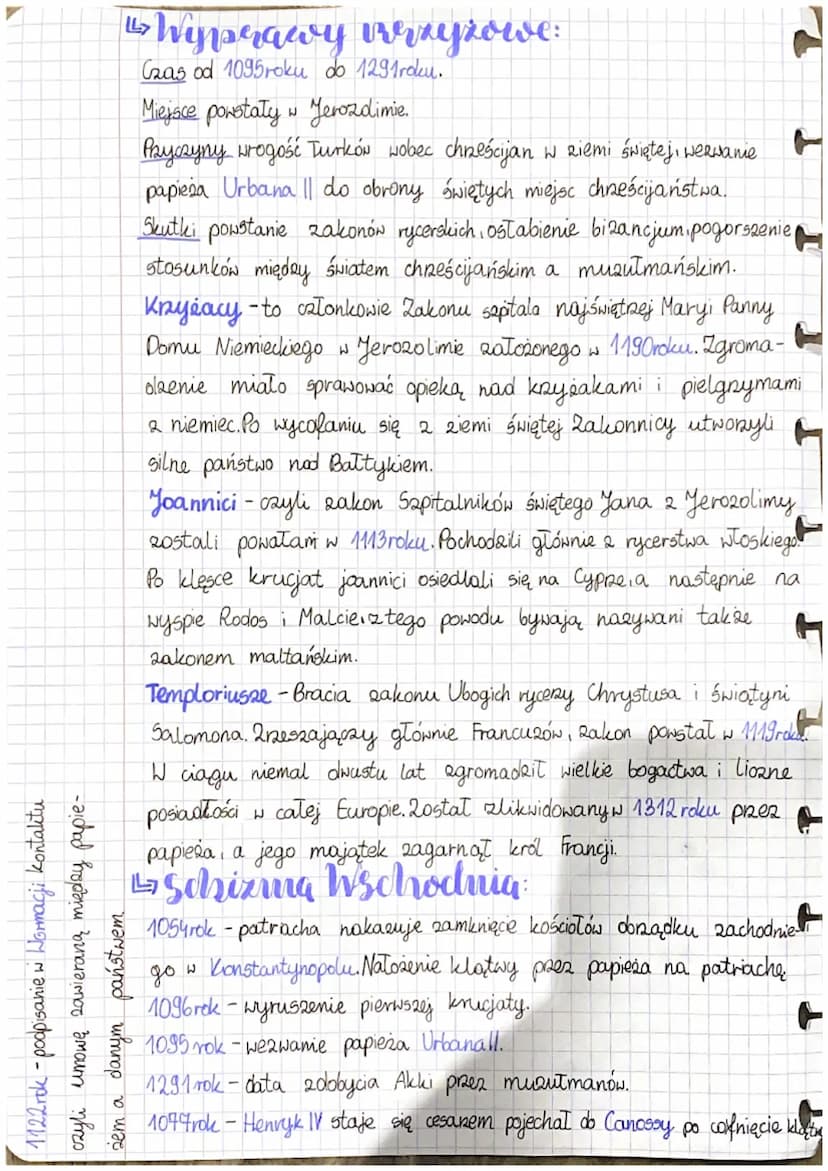 Wyprawy krzyżowe:
Czas od 1095roku do 1291roku.
Miejsce powstały w Jerozolimie.
Przyczyny wrogość Turków wobec chrześcijan w ziemi świętej, wezwanie
papieża Urbana II do obrony świętych miejsc chrześcijaństwa.
Skutki powstanie zakonów rycerskich, osłabienie bizancjum, pogorszenie
stosunków między światem chrześcijańskim a muzułmańskim.
Krzyżacy - to członkowie Zakonu szpitala najświętrzej Maryi Panny
Domu Niemieckiego w Jerozolimie założonego w 1190roku. Zgroma-
dzenie miało sprawować opieką nad krzyżakami i pielgrzymami
z niemiec. Po wycofaniu się z ziemi świętej Zakonnicy utworzyli
silne państwo nad Bałtykiem.
Joannici - czyli zakon Szpitalników świętego Jana z Jerozolimy
zostali powołani w 1113roku. Pochodzili głównie z rycerstwa włoskiego.
Po klęsce krucjat joannici osiedlali się na Cyprze, a następnie na
wyspie Rodos i Malcie, z tego powodu bywają nazywani także
zakonem maltańskim.
Templariusze - Bracia zakonu Ubogich rycerzy Chrystusa i świątyni
Salomona. Zrzeszający głównie Francuzów, zakon powstał w 1119roku.
W ciągu niemal dwustu lat zgromadził wielkie bogactwa i liczne
posiadłości w całej Europie. Został zlikwidowany w 1312 roku przez
papieża, a jego majątek zagarnął król Francji.
Schizma Wschodnia:
1054rok - patriacha nakazuje zamknięcie kościołów obrządku zachodnie-
go w Konstantynopolu. Nałożenie klątwy przez papieża na patriachę
1096rok - wyruszenie pierwszej krucjaty.
1095 rok - wezwanie papieża Urbana II.
1291 rok - data zdobycia Akki przez muzułmanów.
1077rok - Henryk IV staje się cesarzem pojechał do Canossy po cofnięcie klątwy
1122rok - podpisanie w Wormacji kontaktu
czyli umowę zawieraną między papie-
żem a danym państwem